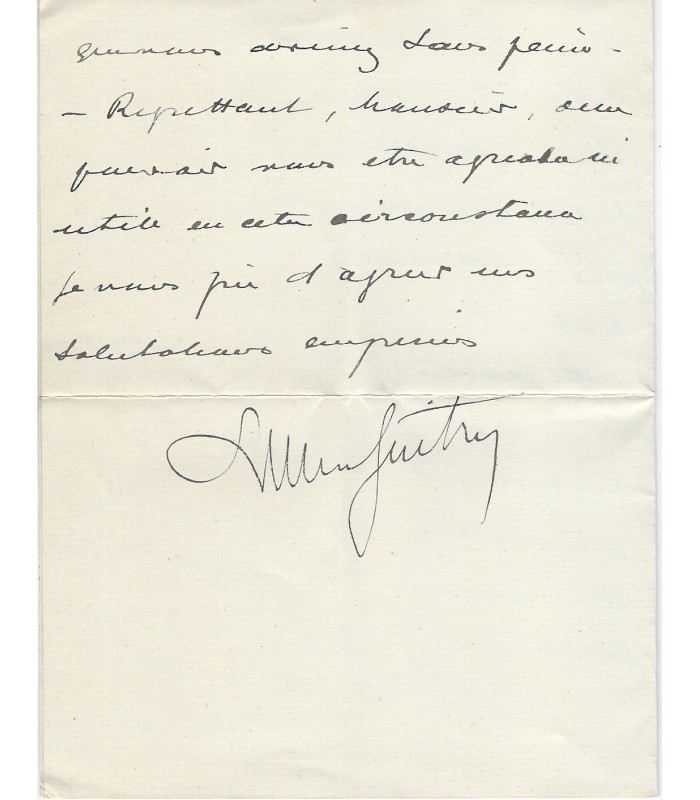 que vous devinez sans peine -
- Regrettant, Monsieur, de ne
pouvoir vous etre agreable ni
utile en cette circonstance
je vous prie d'agreer mes
salutations empressées
Lucien Guitry